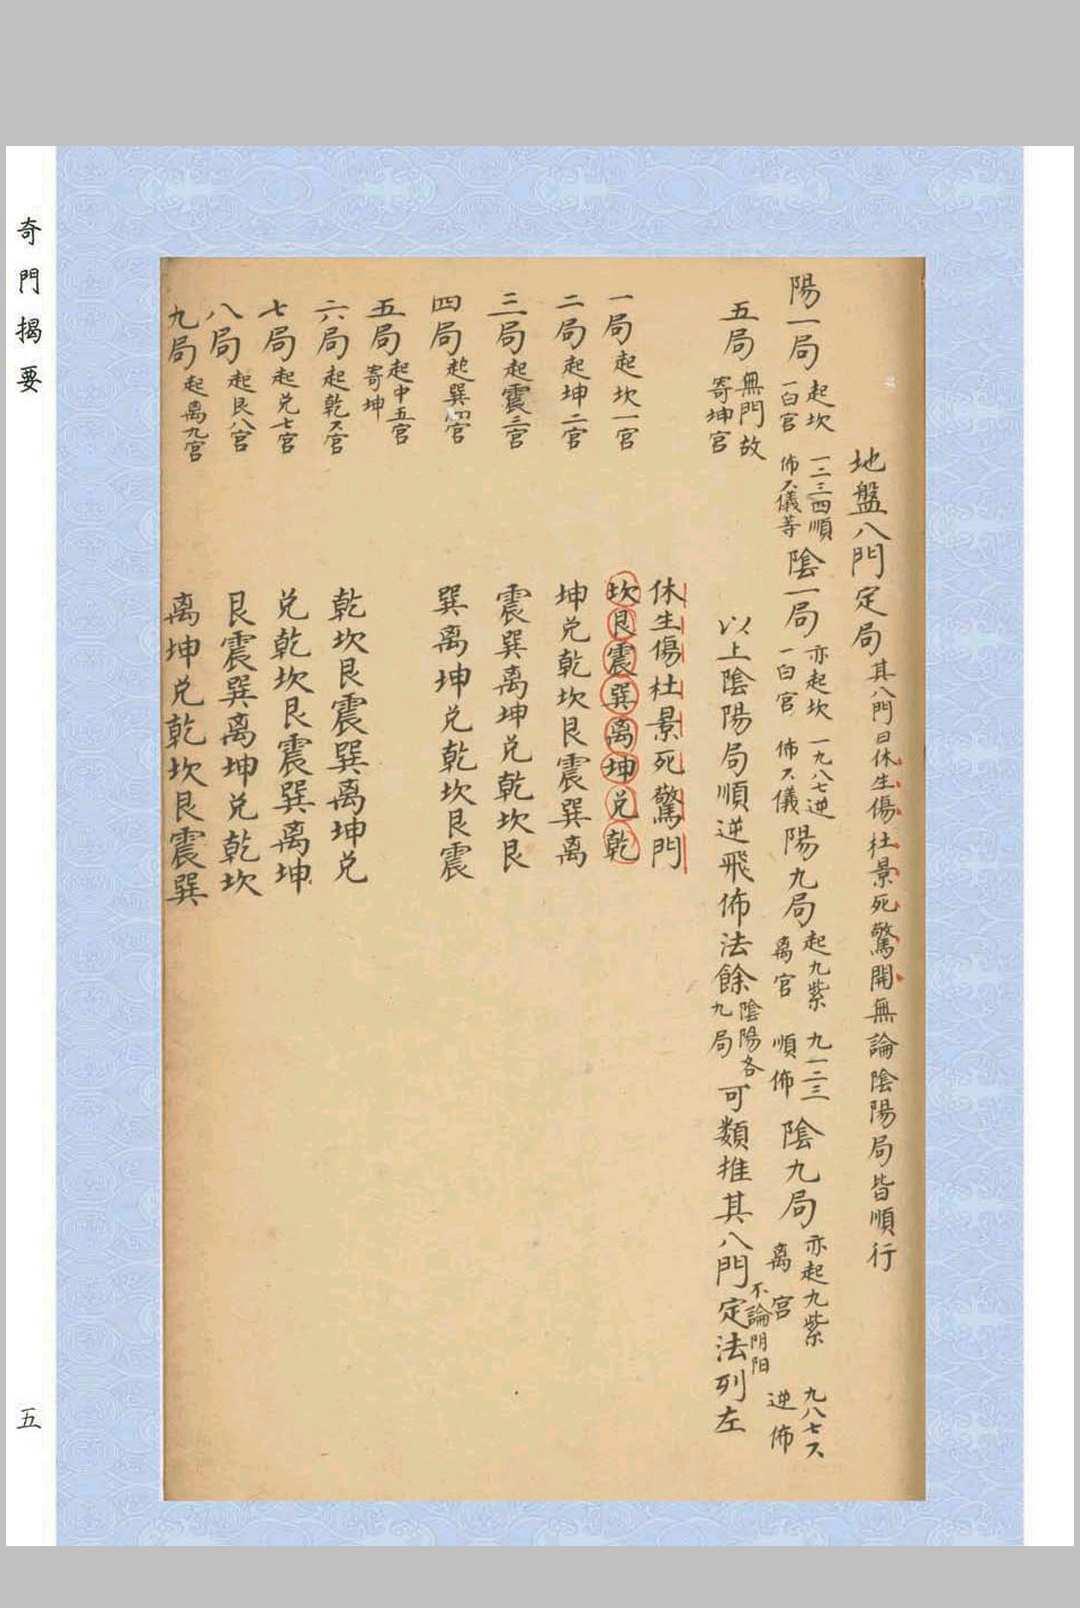 地盤八門定局其八門曰休生傷杜景死驚開無論陰陽局皆順行
陽一局起坎一白宮一二三四順佈六儀等陰一局亦起坎一白宮一九八七逆佈六儀陽九局起九紫离宮九一二三順佈陰九局亦起九紫离宮九八七六逆佈
五局無門故寄坤宮以上陰陽局順逆飛佈法餘陰陽各九局可類推其八門定不論阴阳法列左
休生傷杜景死驚門
一局起坎一宮坎艮震巽离坤兑乾
二局起坤二宮坤兑乾坎艮震巽离
三局起震三宮震巽离坤兑乾坎艮
四局起巽四宮巽离坤兑乾坎艮震
五局起中五宮寄坤
六局起乾六宮乾坎艮震巽离坤兑
七局起兑七宮兑乾坎艮震巽离坤
八局起艮八宮艮震巽离坤兑乾坎
九局起离九宮离坤兑乾坎艮震巽
奇門揭要
五